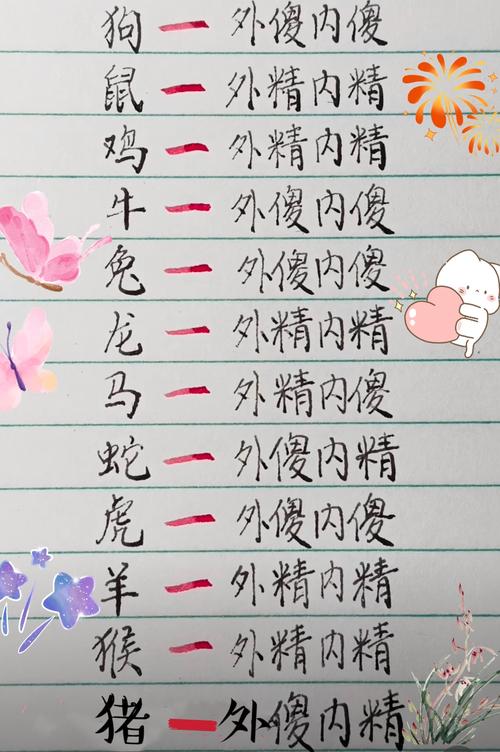 狗一外傻内傻
鼠一外精内精
鸡一外精内精
牛一外傻内傻
兔一外傻内傻
龙一外精内精
马一外精内傻
蛇一外傻内精
虎一外傻内傻
羊一外精内精
猴一外精内精
猪一外傻内精